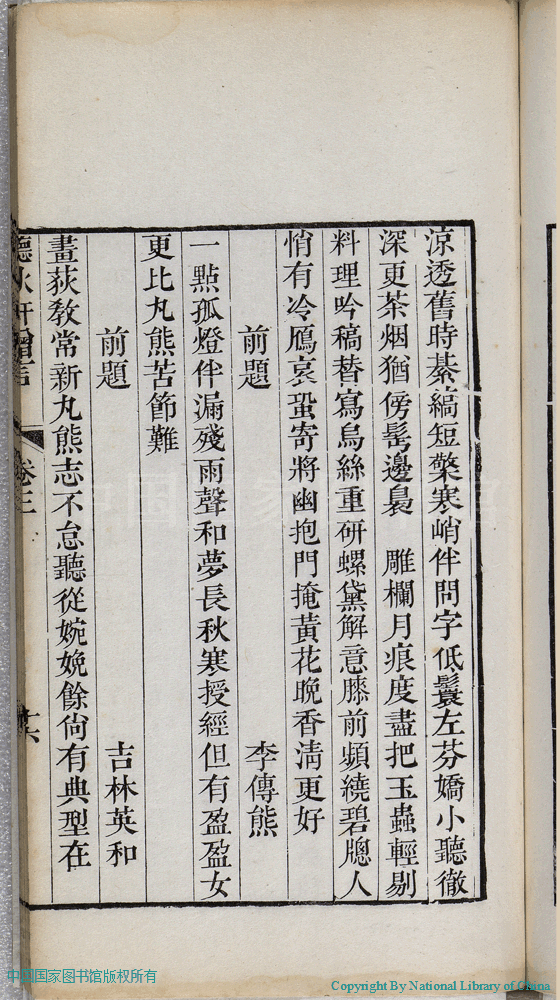 涼透舊時綦縞短檠寒峭伴問字低鬟左芬嬌小聽徹
深更茶烟猶傍髩邊裊　雕欄月痕度盡把玉蟲輕剔
料理吟稿替寫烏絲重研螺黛解意膝前頻繞碧牕人
悄有冷鴈哀蛩寄將幽抱門掩黃花晚香清更好
前題　李傳熊
一點孤燈伴漏殘雨聲和夢長秋寒授經但有盈盈女
更比丸熊苦節難
前題　吉林英和
畫荻教常新丸熊志不怠聽從婉娩餘尙有典型在
卷三
十六
中国国家图书馆版权所有
Copyright By National Library of China